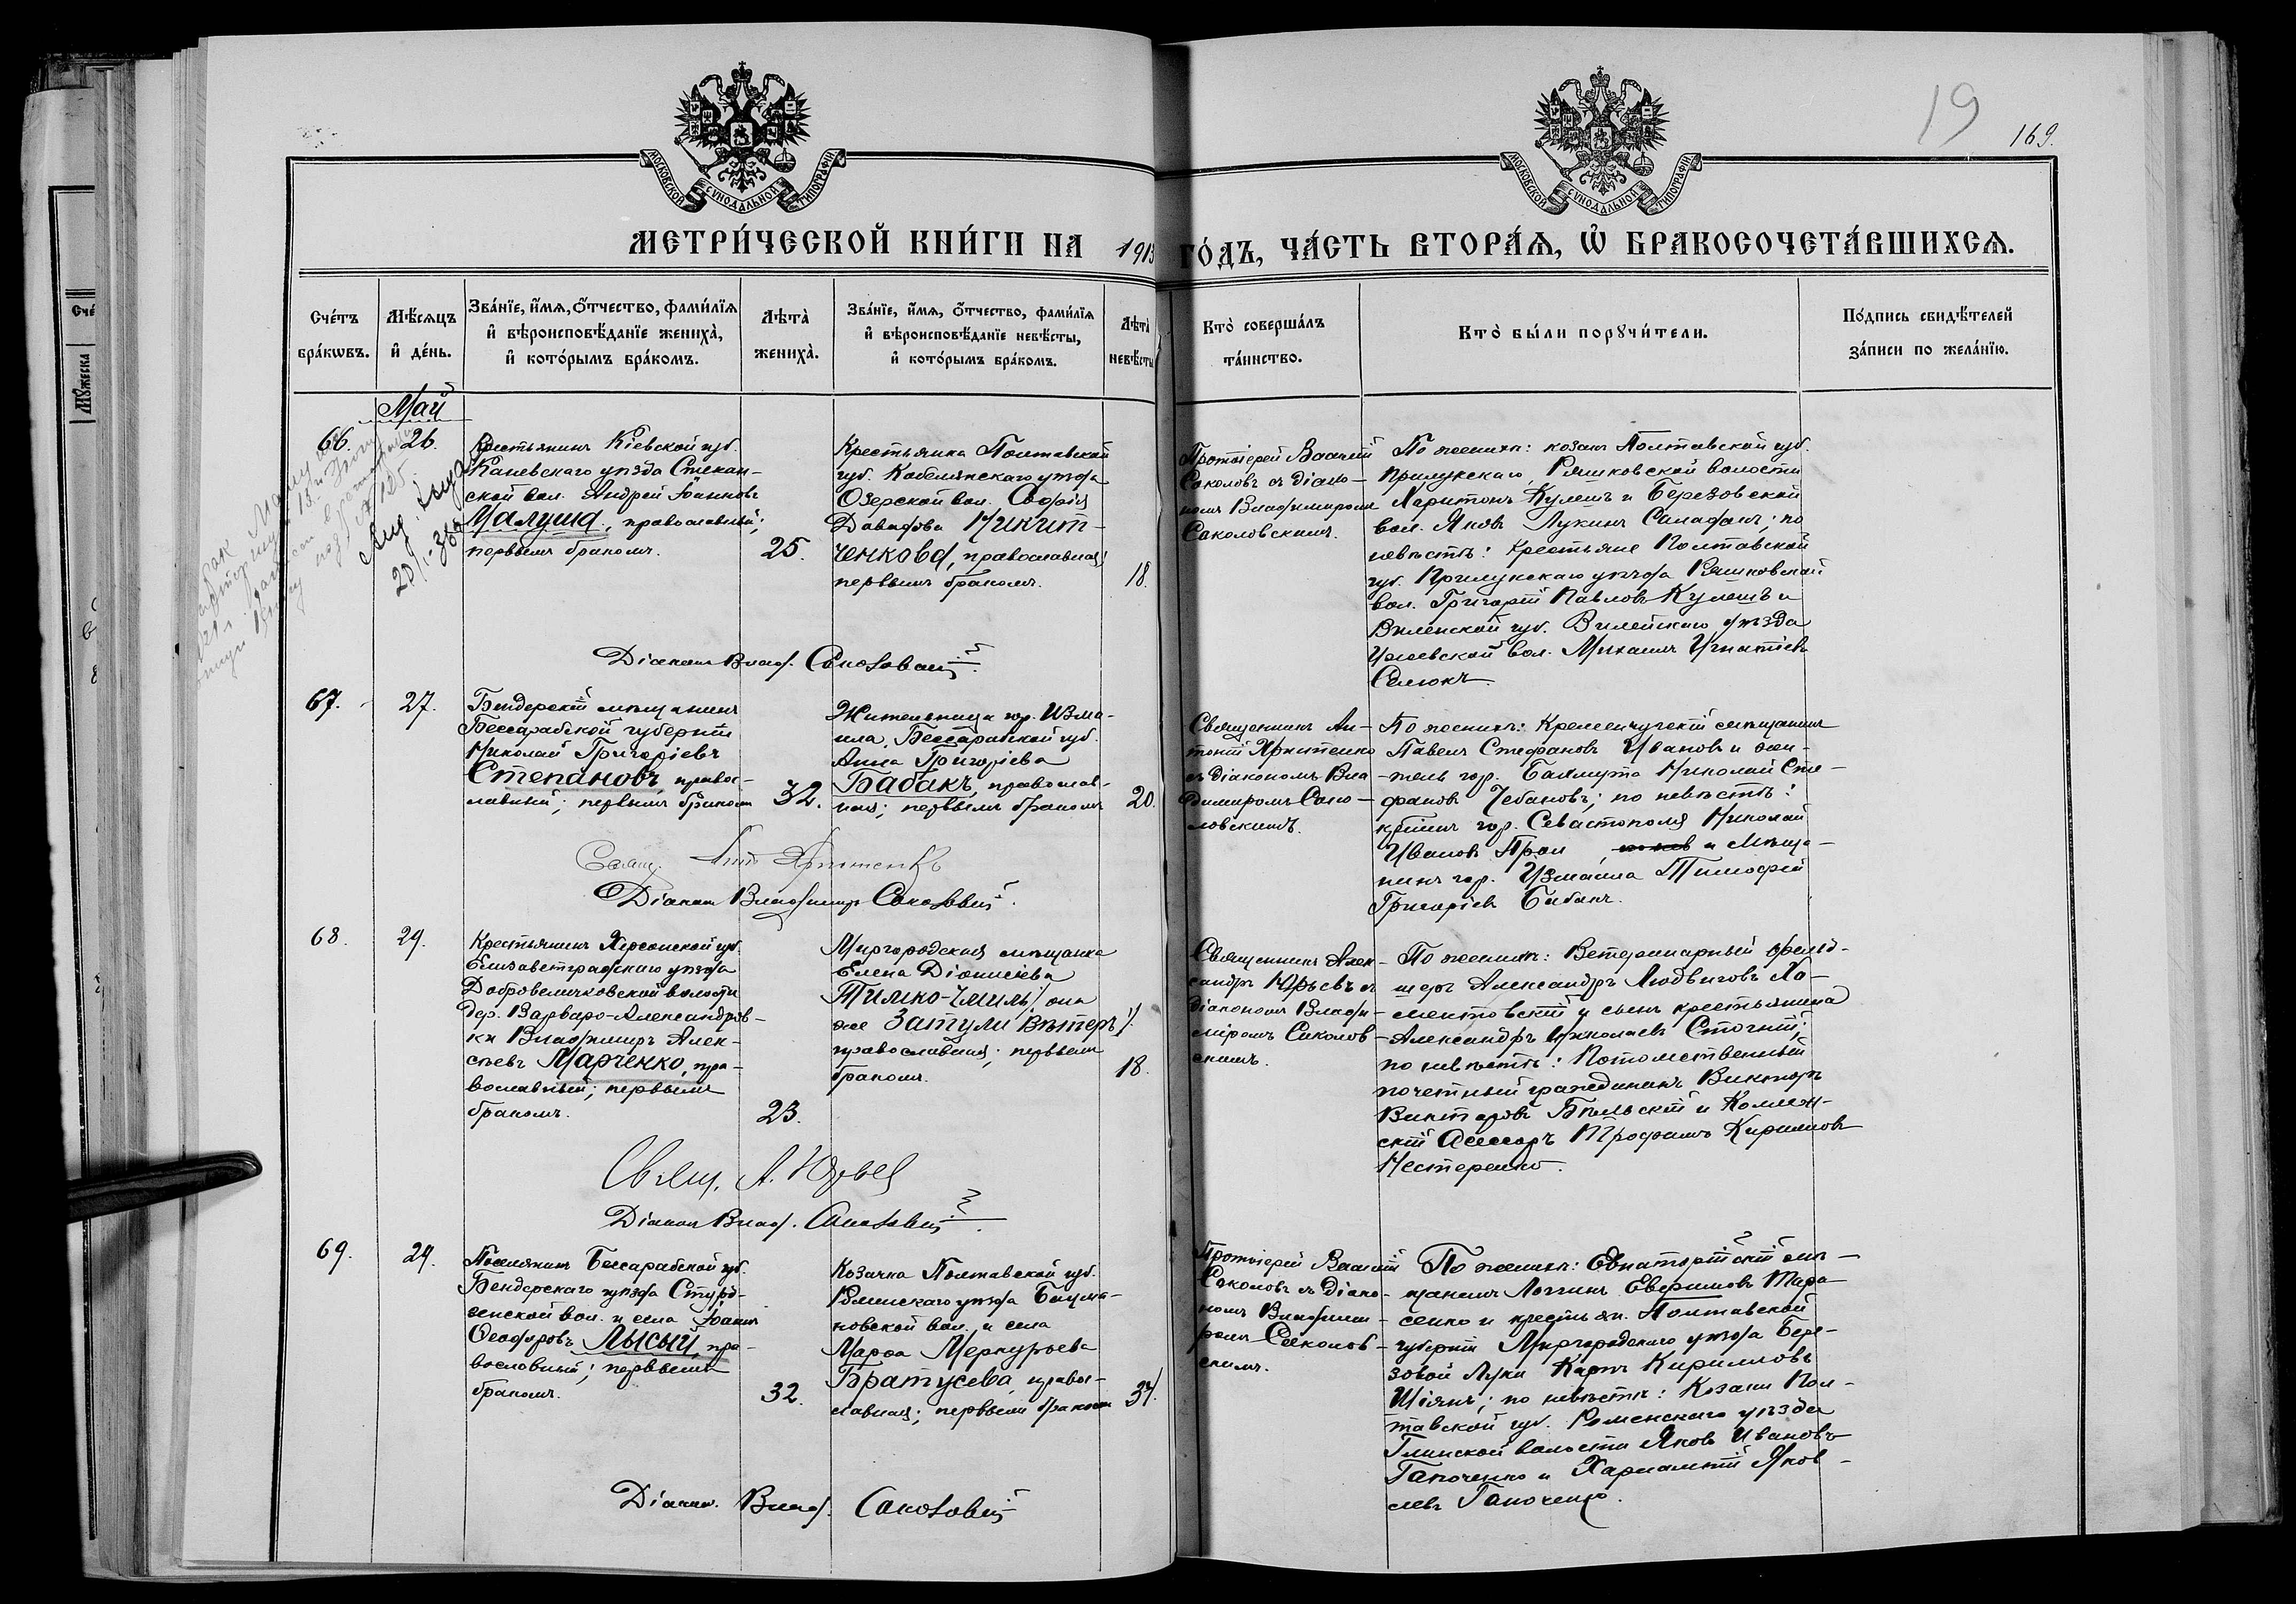 19
169.
МОСКОВСКОЙ СУНОДАЛЬНОЙ ТИПОГРАФІИ
МОСКОВСКОЙ СУНОДАЛЬНОЙ ТИПОГРАФІИ
МЕТРИ́ЧЕСКОЙ КНИ́ГИ НА 1913 ГО́ДЪ, ЧА́СТЬ ВТОРА́Я, Ѡ БРАКОСОЧЕТА́ВШИХСЯ.
Сче́тъ
бра́кѡвъ.
Мѣ́сяцъ
и҆ де́нь.
Зва́нїе, и҆́мя, ѻ҆́тчество, фами́лїя
и҆ вѣроисповѣ́данїе жениха̀,
и҆ кото́рымъ бра́комъ.
Лѣта̀
жениха̀.
Зва́нїе, и҆́мя, ѻ҆́тчество, фами́лїя
и҆ вѣроисповѣ́данїе невѣ́сты,
и҆ кото́рымъ бра́комъ.
Лѣта̀
невѣ́сты
Кто̀ соверша́лъ
та́инство.
Кто̀ бы́ли порꙋчи́тели.
По́дпись свидѣ́телей
за́писи по жела́нїю.
Май
66.
26.
Крестьянинъ Кіевской губ.
Каневскаго уѣзда Степан-
ской вол. Андрей Іоанновъ
Малуша, православный;
первымъ бракомъ.
25.
Крестьянка Полтавской
губ. Кобелякскаго уѣзда
Озерской вол. Софія
Давидова Никит-
ченкова, православная;
первымъ бракомъ.
18.
Протоіерей Василій
Соколовъ съ діако-
номъ Владиміромъ
Соколовскимъ.
По женихѣ: козакъ Полтавской губ.
Прилукскаго, Ряшковской волости
Харитонъ Кулешъ и Березовской
вол. Яковъ Лукинъ Салафанъ; по
невѣстѣ: крестьяне Полтавской
губ. Прилукскаго уѣзда Ряшковской
вол. Григорій Павловъ Кулешъ и
Виленской губ. Вилейскаго уѣзда
вол. Михаилъ Игнатіевъ
Селюкъ.
Діаконъ Влад. Соколовскій
67.
27.
Бендерскій мѣщанинъ
Бессарабской губерніи
Николай Григоріевъ
Степановъ, правос-
лавный; первымъ бракомъ
32.
Жительница гор. Изма-
ила, Бессарабской губ.
Анна Григоріева
Бабакъ, православ-
ная; первымъ бракомъ
20.
Священникъ Ан-
тоній Яхитенко
съ діакономъ Вла-
димиромъ Соко-
ловскимъ.
По женихѣ: Кременчугскій мѣщанинъ
Павелъ Стефановъ Ивановъ и жи-
тель гор. Бахмута Николай Сте-
фановъ Чебановъ; по невѣстѣ:
гор. Севастополя Николай
Ивановъ и мѣща-
нинъ гор. Измаила Тимофей
Григоріевъ Бабакъ.
Свящ.
Діаконъ Владимиръ Соколовскій.
68.
29.
Крестьянинъ Херсонской губ.
Елизаветградскаго уѣзда
Добровеличковской волости
дер. Варваро-Александров-
ки Владимиръ Алек-
сѣевъ Марченко, пра-
вославный; первымъ
бракомъ.
23.
Миргородская мѣщанка
Елена Діонисіева
Тимко-Чмиль / она
же Затули Вѣтеръ /
православная; первымъ
бракомъ.
18.
Священникъ Алек-
сандръ Юрьевъ съ
діакономъ Влади-
міромъ Соколов-
скимъ.
По женихѣ: Ветеринарный фельд-
шеръ Александръ Людвиговъ Хо-
ментовскій и сынъ крестьянина
Александръ Николаевъ Сточній;
по невѣстѣ: Потомственный
почетный гражданинъ Викторъ
Викторовъ Бѣльскій и Коллеж-
скій Асессоръ Трофимъ Кирилловъ
Нестеренко.
Свящ. А. Юрьев
Діаконъ Влад. Соколовскій
69.
29.
Поселянинъ Бессарабской губ.
Бендерскаго уѣзда Стурд-
зенской вол. и села Іоаннъ
Ѳеодоровъ Лысый, пра-
вославный; первымъ
бракомъ.
32.
Козачка Полтавской губ.
Роменскаго уѣзда Бацма-
новской вол. и села
Марѳа Меркурьева
Братусева, правос-
лавная; первымъ бракомъ
34.
Протоіерей Василій
Соколовъ съ діако-
номъ Владими-
ромъ Соколов-
скимъ.
По женихѣ: Евпаторійскій мѣ-
щанинъ Логгинъ Евфимовъ Тара-
сенко и крестьян. Полтавской
губерніи Миргородскаго уѣзда Бере-
зовой Луки Карпъ Кирилловъ
Шіянъ; по невѣстѣ: Козаки Пол-
тавской губ. Роменскаго уѣзда
Глинской волости Яковъ Ивановъ
Гапоченко и Харлампій Яков-
левъ Гапоченко.
Діаконъ Влад. Соколовскій